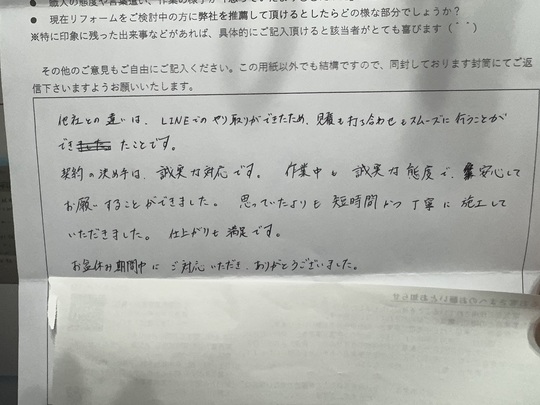 ● 職人の態度や言葉遣い、作業の様子
● 現在リフォームをご検討中の方に弊社を推薦して頂けるとしたらどの様な部分でしょうか？
※特に印象に残った出来事などがあれば、具体的にご記入頂けると該当者がとても喜びます（＾＾）
その他のご意見もご自由にご記入ください。この用紙以外でも結構ですので、同封しております封筒にてご返
信下さいますようお願いいたします。
他社との違いは、LINEでのやり取りができたため、見積も打ち合わせもスムーズに行うことが
できたことです。
契約の決め手は、誠実な対応です。作業中も誠実な態度で、安心して
お願いすることができました。思っていたよりも短時間かつ丁寧に施工して
いただきました。仕上がりも満足です。
お盆休み期間中にご対応いただき、ありがとうございました。